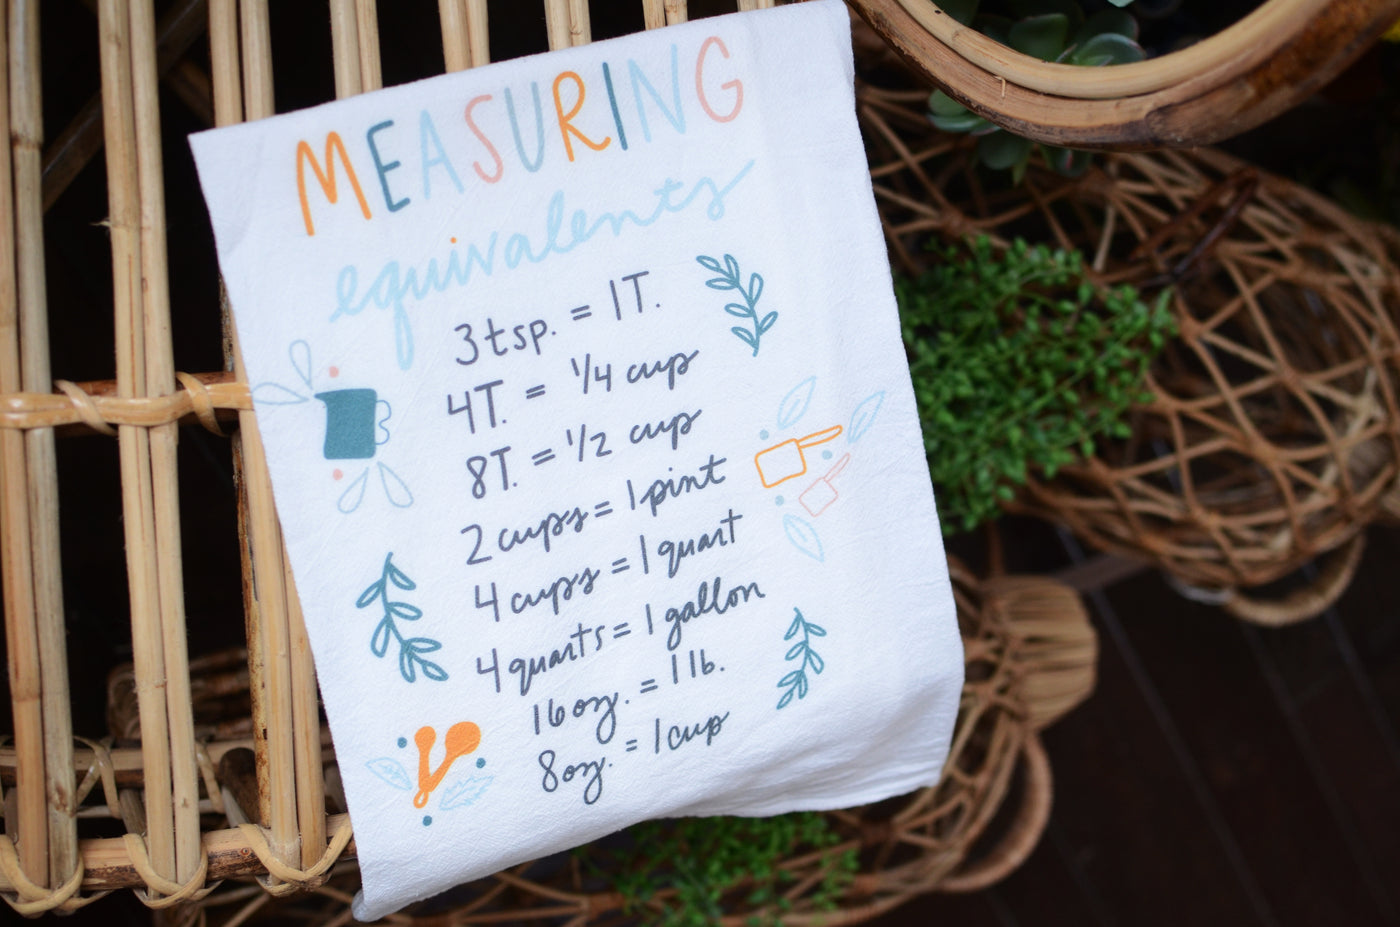 MEASURING
equivalents
3 tsp. = 1 T.
4T. = 1/4 cup
8T. = 1/2 cup
2 cups = 1 pint
4 cups = 1 quart
4 quarts = 1 gallon
16 oz. = 1 lb.
8 oz. = 1 cup